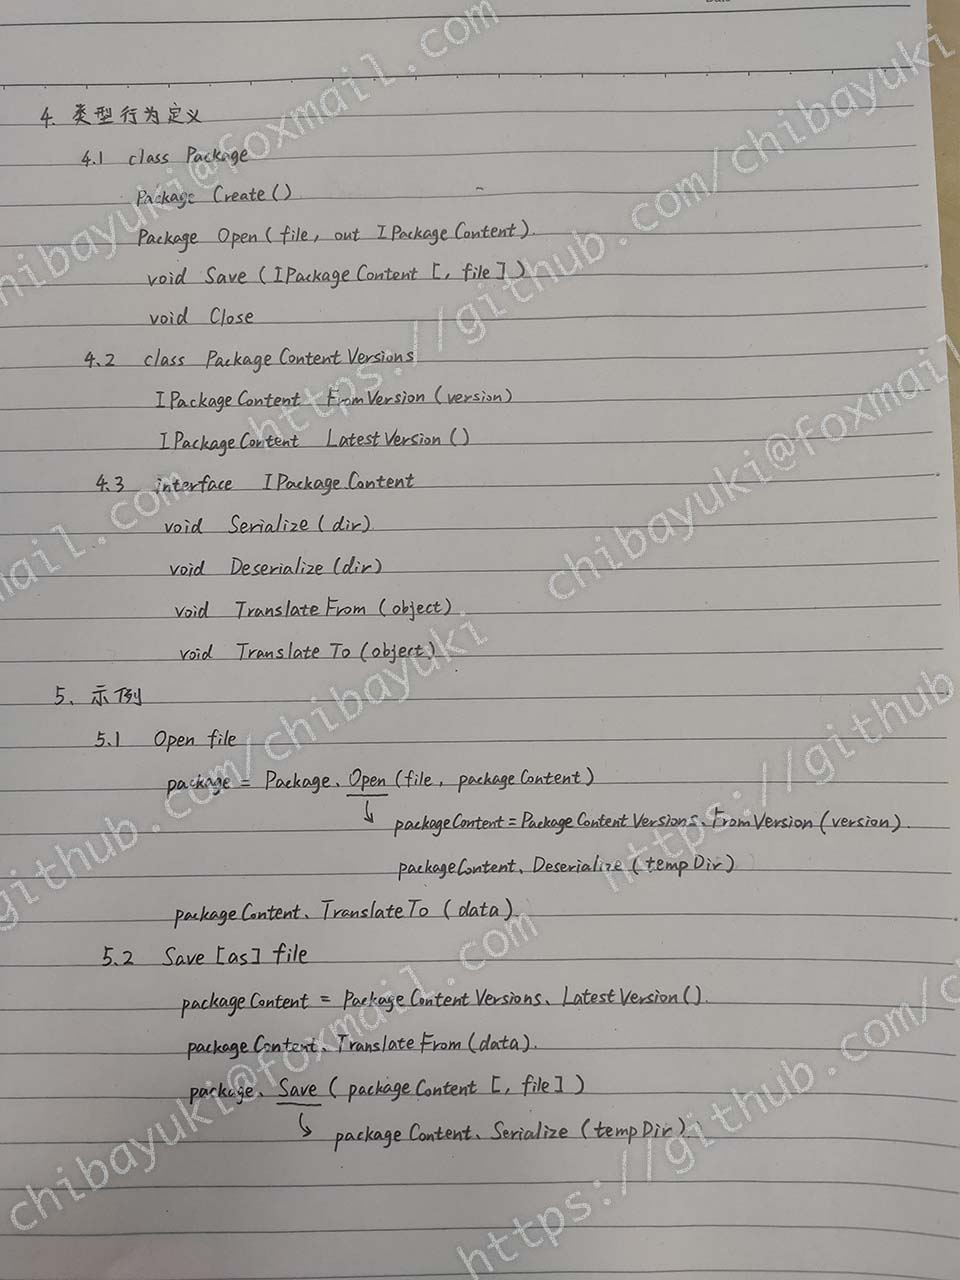 4. 类型行为定义
4.1 class Package
Package Create()
Package Open(file, out IPackageContent).
void Save (IPackageContent [, file])
void Close
4.2 class PackageContentVersions
IPackageContent FromVersion (version)
IPackageContent LatestVersion ()
4.3 interface IPackageContent
void Serialize (dir)
void Deserialize (dir)
void TranslateFrom (object)
void TranslateTo (object)
5、示例
5.1 Open file
package = Package、Open (file, packageContent)
packageContent = PackageContentVersions、FromVersion (version).
packageContent、Deserialize (tempDir)
packageContent、TranslateTo (data).
5.2 Save [as] file
packageContent = PackageContentVersions、LatestVersion().
packageContent、TranslateFrom (data).
package、Save ( packageContent [, file] )
packageContent、Serialize (tempDir).
chibayuki@foxmail.com
https://github.com/chibayuki